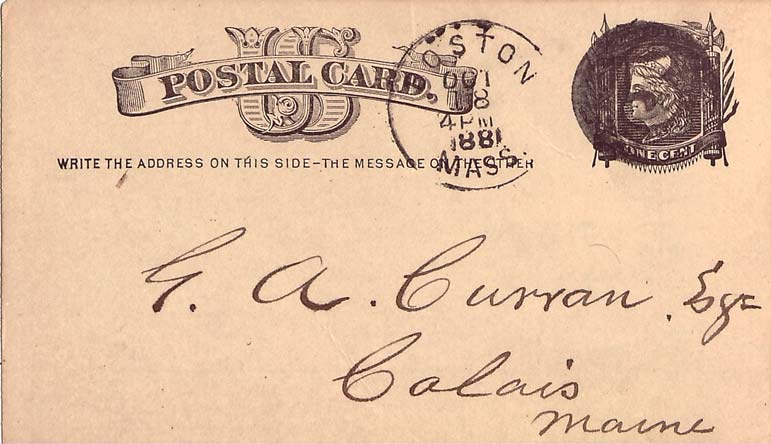 US
POSTAL CARD.
BOSTON
OCT
8
4 PM
1881
MASS.
ONE CENT
WRITE THE ADDRESS ON THIS SIDE-THE MESSAGE ON THE OTHER
G. A. Curran, Esqr
Calais
Maine